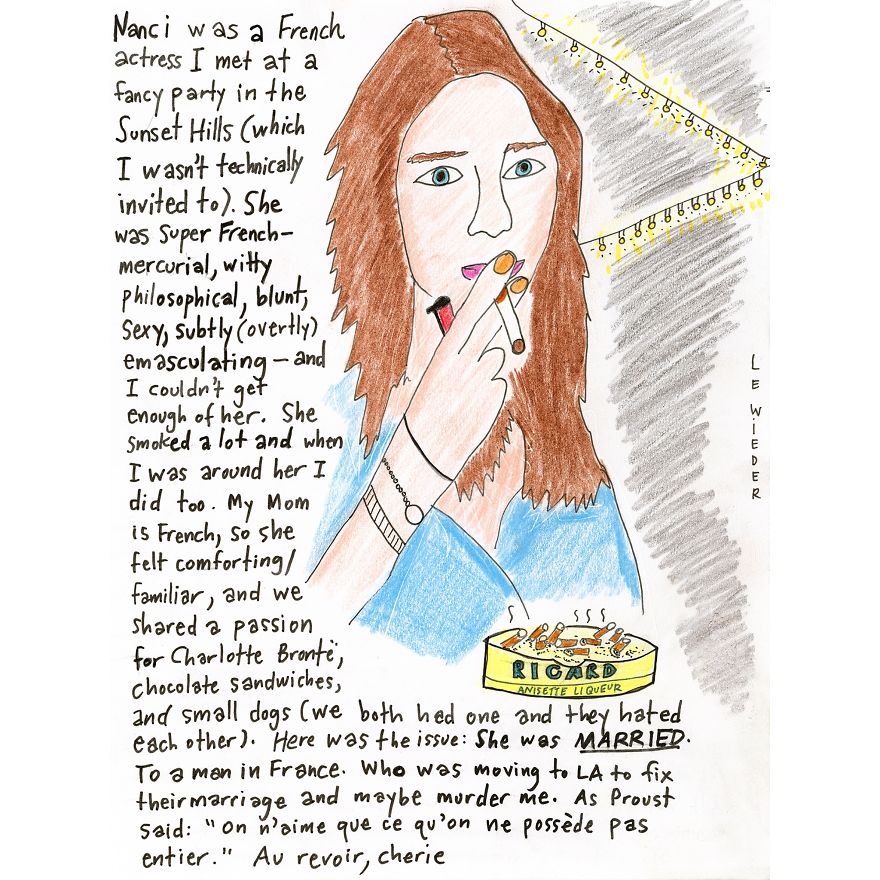 Nanci was a French
actress I met at a
fancy party in the
Sunset Hills (which
I wasn't technically
invited to). She
was super French-
mercurial, witty
philosophical, blunt,
sexy, subtly (overtly)
emasculating - and
I couldn't get
enough of her. She
smoked a lot and when
I was around her I
did too. My Mom
is French, so she
felt comforting/
familiar, and we
shared a passion
for Charlotte Brontë,
chocolate sandwiches,
and small dogs (we both had one and they hated
each other). Here was the issue: She was MARRIED.
To a man in France. Who was moving to LA to fix
their marriage and maybe murder me. As Proust
said: "On n'aime que ce qu'on ne possède pas
entier." Au revoir, cherie
RICARD
ANISETTE LIQUEUR
LE WIEDER